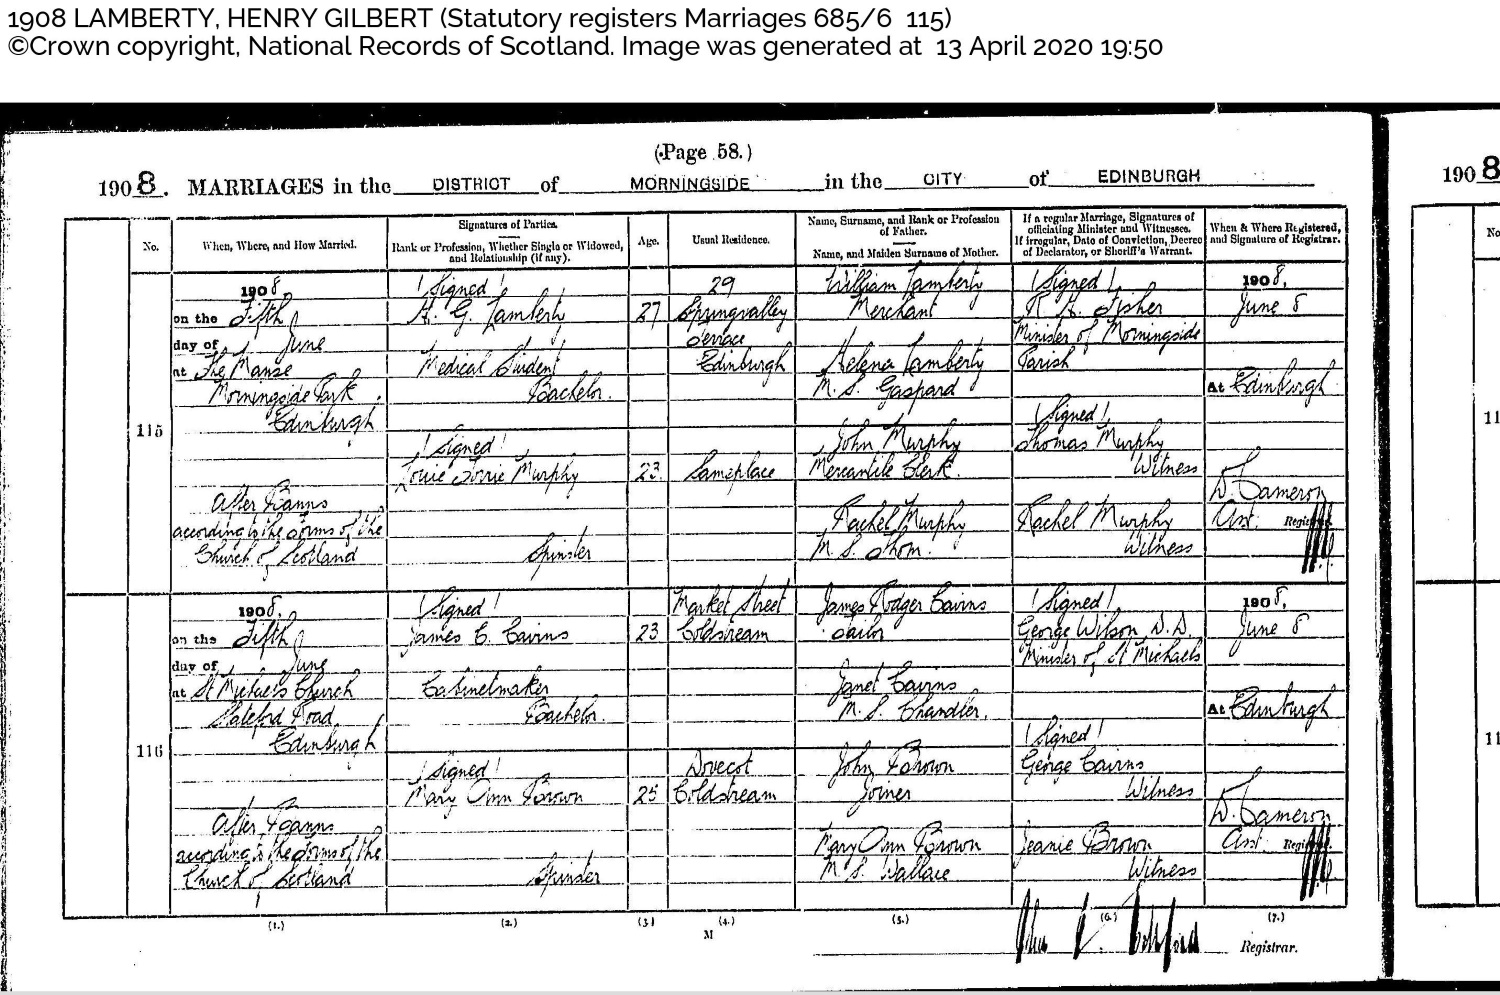 1908 LAMBERTY, HENRY GILBERT (Statutory registers Marriages 685/6 115)
©Crown copyright, National Records of Scotland. Image was generated at 13 April 2020 19:50
(Page 58.)
1908. MARRIAGES in the DISTRICT of MORNINGSIDE in the CITY of EDINBURGH
1908
No.
When, Where, and How Married.
Signatures of Parties.
Rank or Profession, Whether Single or Widowed,
and Relationship (if any).
Age.
Usual Residence.
Name, Surname, and Rank or Profession
of Father.
Name, and Maiden Surname of Mother.
If a regular Marriage, Signatures of
officiating Minister and Witnesses.
If irregular, Date of Conviction, Decree
of Declarator, or Sheriff's Warrant.
When & Where Registered,
and Signature of Registrar.
No
115
1908,
on the Fifth
day of June
at The Manse
Morningside Park
Edinburgh
After Banns
according to the Forms of the
Church of Scotland
(Signed)
H. G. Lamberty
Medical Student
Bachelor.
(Signed)
Louie Torrie Murphy
Spinster
27
23
29
Springvalley
Terrace
Edinburgh
Sameplace
William Lamberty
Merchant
Helena Lamberty
M.S. Gaspard
John Murphy
Mercantile Clerk.
Rachel Murphy
M.S. Thom.
(Signed)
R. H. Fisher
Minister of Morningside
Parish
(Signed)
Thomas Murphy
Witness
Rachel Murphy
Witness
1908,
June 8
At Edinburgh
D. Cameron
Asst. Registrar.
11
116
1908,
on the Fifth
day of June
at St Michaels Church
Slateford Road,
Edinburgh
After Banns
according to the Forms of the
Church of Scotland
(Signed)
James C. Cairns
Cabinetmaker
Bachelor.
(Signed)
Mary Ann Brown
Spinster
23
25
Market Street
Coldstream
Dovecot
Coldstream
James Rodger Cairns
Tailor
Janet Cairns
M.S. Chandler.
John Brown
Joiner
Mary Ann Brown
M.S. Wallace
(Signed)
George Wilson, D.D.
Minister of St Michaels
(Signed)
George Cairns
Witness
Jeanie Brown
Witness
1908,
June 8
At Edinburgh
D. Cameron
Asst. Registrar.
11
(1.) (2.) (3) (4.) (5.) (6.) (7.)
M
John
Registrar.